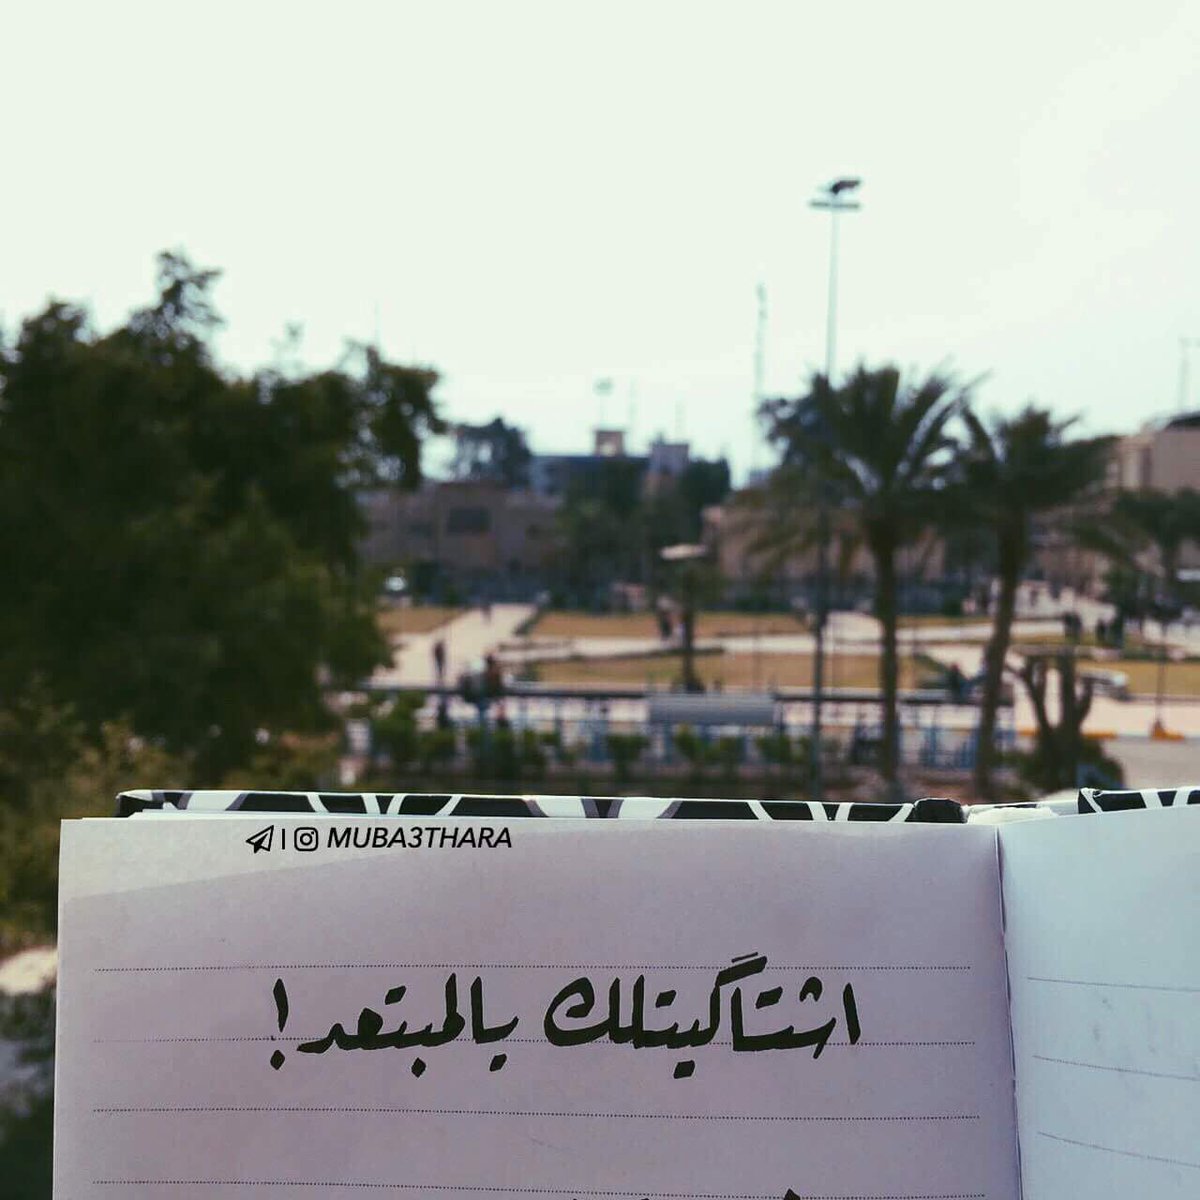 MUBA3THARA
اشتاگيتلك يالمبتعد!